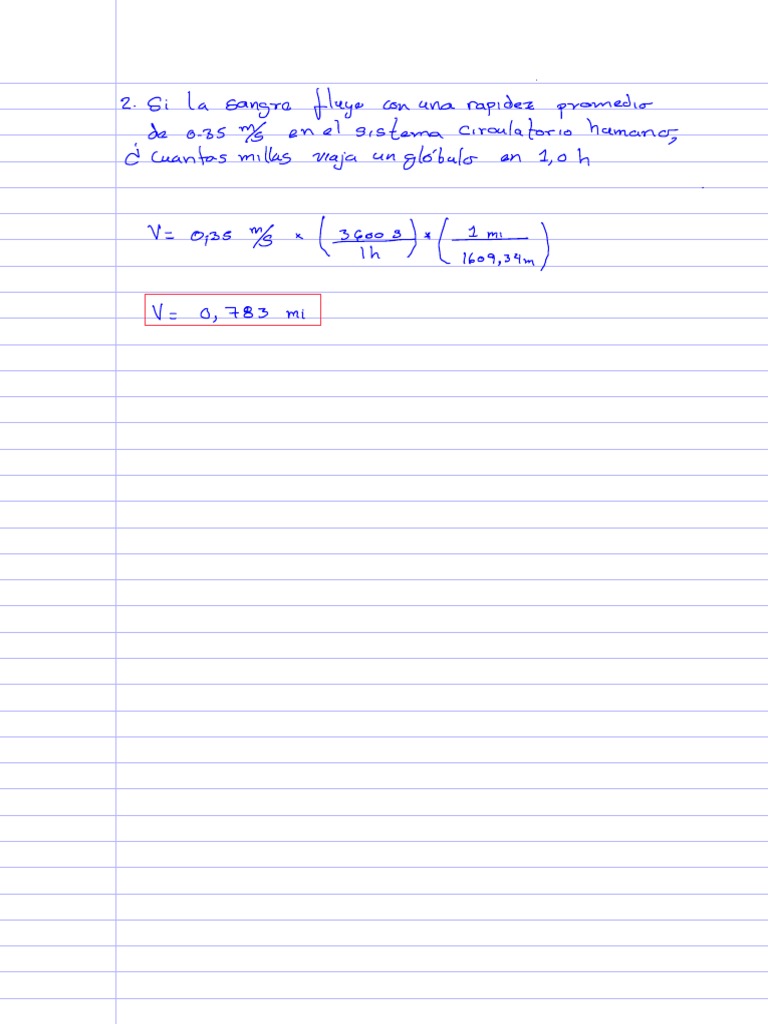 2. Si la sangre fluye con una rapidez promedio
de 0.35 m/s en el sistema circulatorio humano,
¿ cuantas millas viaja un glóbulo en 1,0 h
V = 0,35 m/s * (3600 s / 1h) * (1 mi / 1609,34m)
V = 0,783 mi